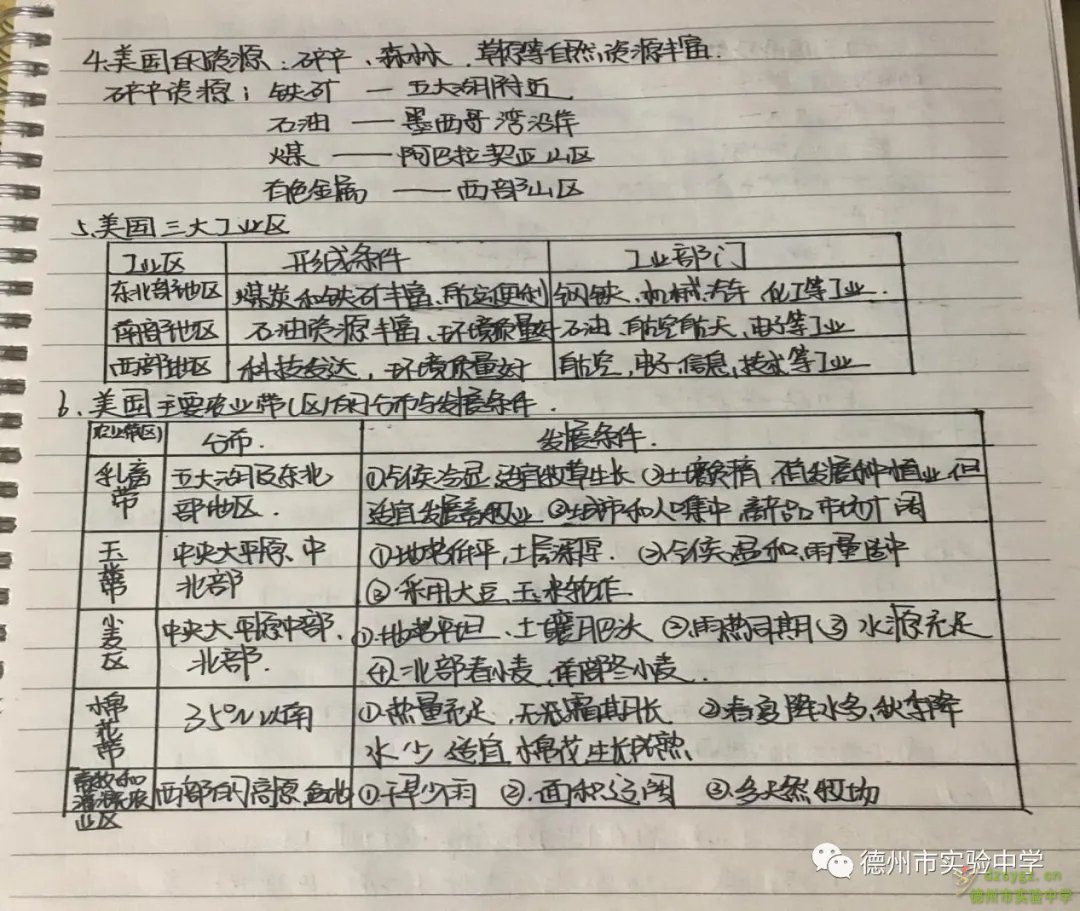 4.美国的资源：矿产、森林、草原等自然资源丰富.
矿产资源：铁矿 — 五大湖附近
石油 — 墨西哥湾沿岸
煤 — 阿巴拉契亚山区
有色金属 — 西部山区
5.美国三大工业区
工业区 形成条件 工业部门
东北部地区 煤炭和铁矿丰富、航运便利 钢铁、机械、汽车、化工等工业.
南部地区 石油资源丰富、环境质量好 石油、航空航天、电子等工业
西部地区 科技发达，环境质量好 航空、电子、信息、技术等工业
6.美国主要农业带(区)的分布与发展条件.
农业带(区) 分布. 发展条件.
乳畜带 五大湖及东北部地区. ①气候冷湿，适宜牧草生长 ②土壤贫瘠，不宜发展种植业，但
适宜发展畜牧业 ③城市和人口集中，商产品市场广阔
玉米带 中央大平原中北部 ①地势低平，土层深厚. ②气候温和，雨量适中
③采用大豆玉米轮作
小麦区 中央大平原中部.北部. ①地势平坦、土壤肥沃 ②雨热同期 ③水源充足
④北部春小麦，南部冬小麦.
棉花带 35°N以南 ①热量充足，无霜期长 ②春夏降水多，秋季降
水少 适宜棉花生长成熟
畜牧和灌溉农业区 西部的高原盆地 ①干旱少雨 ②面积辽阔 ③多天然牧场
德州市实验中学
dzsygz.cn
德州市实验中学